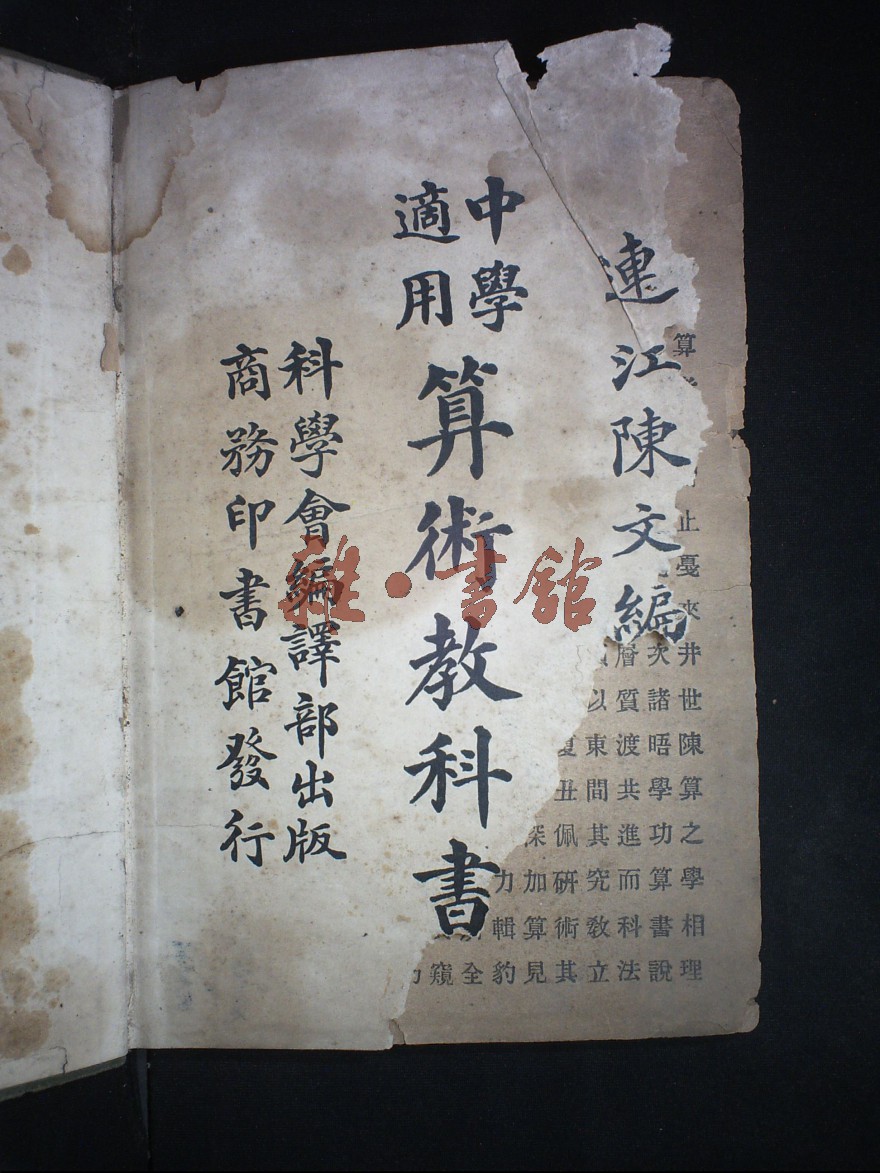 連江陳文編
中學
適用
算術教科書
科學會編譯部出版
商務印書館發行
雜·書館
算
止戞
井世陳算之學相理
次諸晤學功算書說
層質渡共進而科法
以東間其究教立
丑佩研術其
深加算見
力輯豹
全
窺